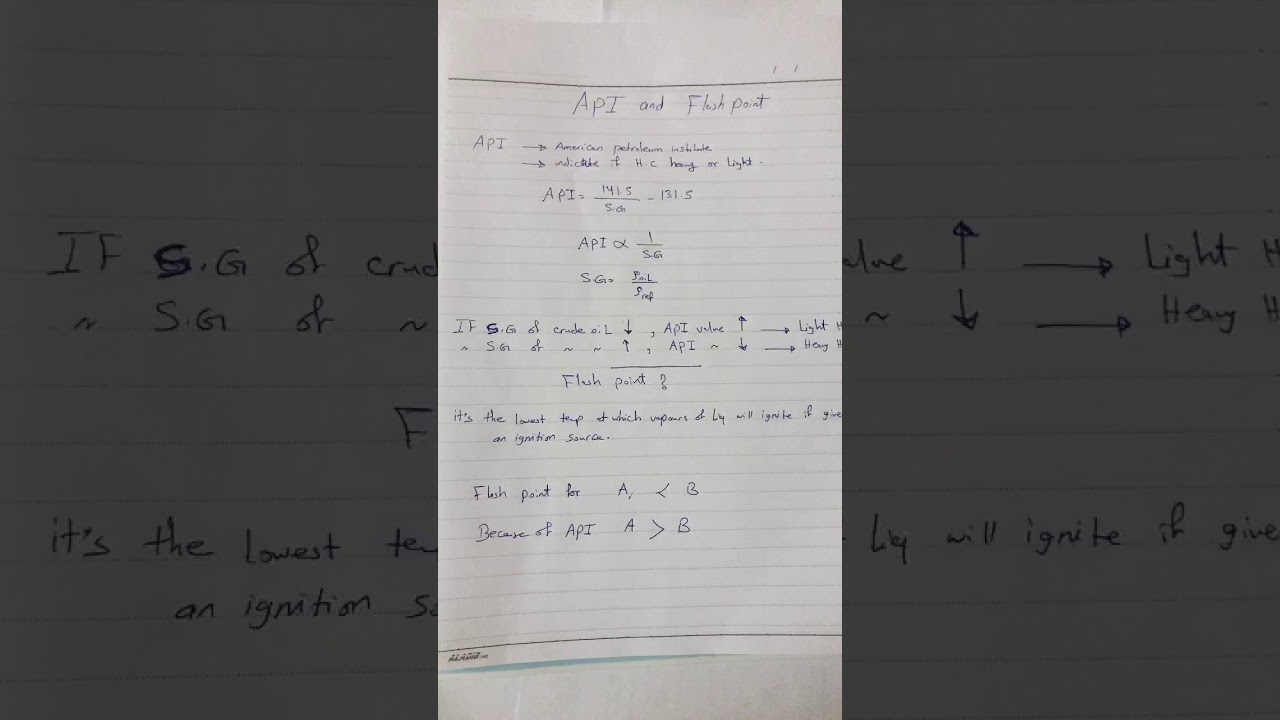 API and Flash point
API → American petroleum institute
→ indicate if H.C heavy or Light.
API = 141.5 / S.G - 131.5
API ∝ 1 / S.G
S.G = ρoil / ρref
IF S.G of crude oil ↓ , API value ↑ → Light H
~ S.G of ~ ~ ↑ , API ~ ↓ → Heavy H
Flash point ?
it's the lowest temp at which vapours of Liq will ignite if give
an ignition source.
Flash point for A, < B
Because of API A > B
ALADIB